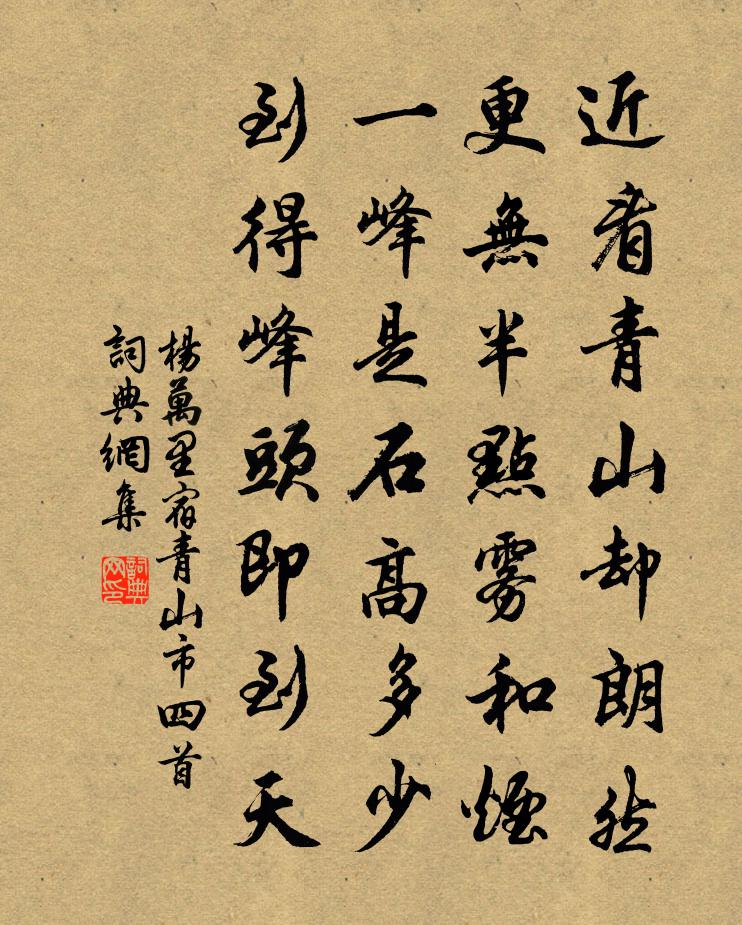 近看青山却朗然
更無半點雾和煙
一峰是石高多少
到得峰頭即到天
楊萬里宿青山市四首
詞典網集
詞典网印